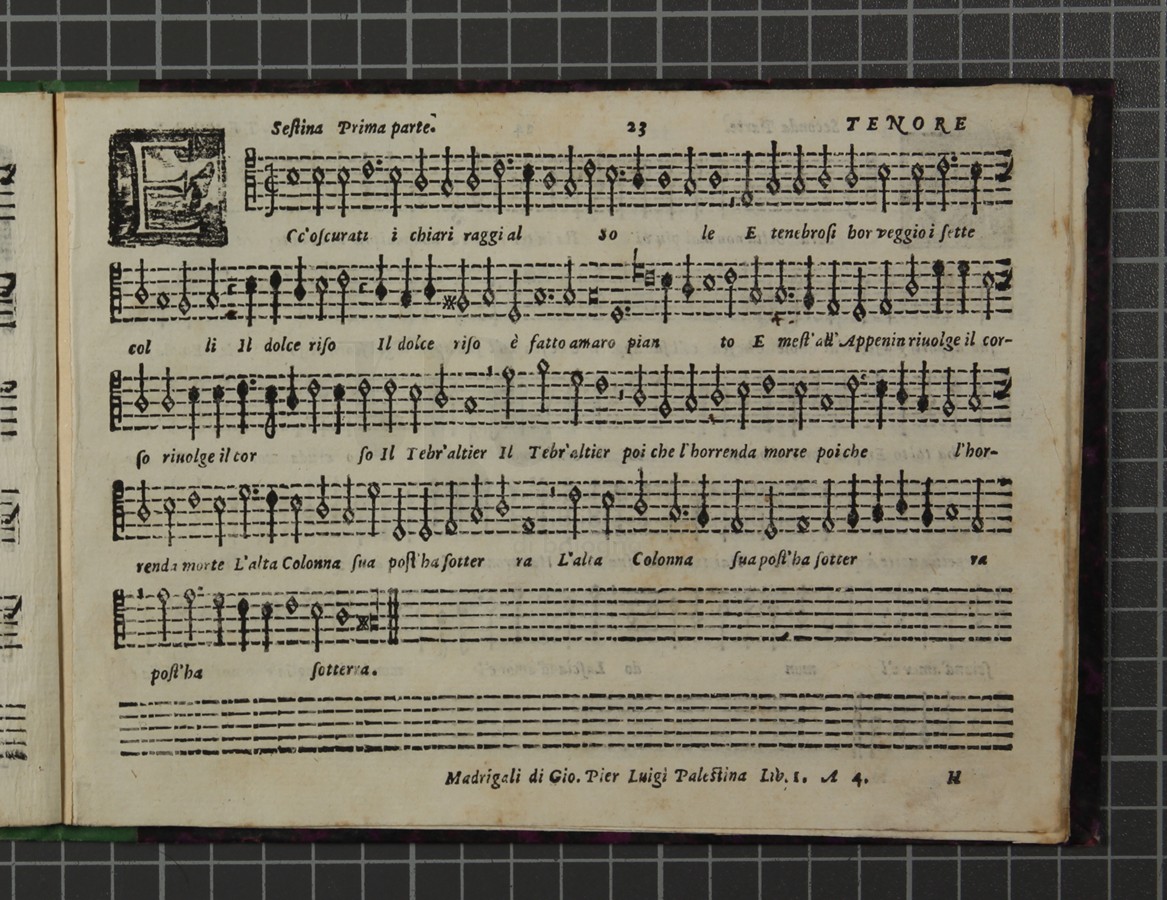 Sestina Prima parte. 23 TENORE
ECc'oscurati i chiari raggi al so le E tenebrosi hor veggio i sette
col li Il dolce riso Il dolce riso è fatto amaro pian to E mest' all' Appenin riuolge il cor-
so riuolge il cor so Il Tebr'altier Il Tebr'altier poi che l'horrenda morte poi che l'hor-
renda morte L'alta Colonna sua post'ha sotter ra L'alta Colonna sua post'ha sotter ra
post'ha sotterra.
Madrigali di Gio. Pier Luigi Palestina Lib. 1. A 4. H